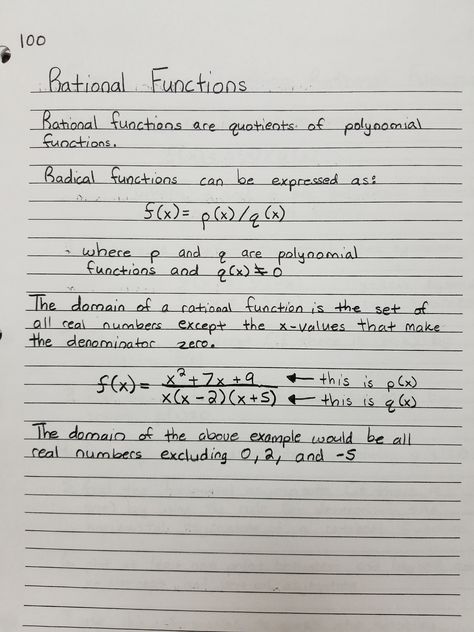 100
Rational Functions
Rational functions are quotients of polynomial
functions.
Radical functions can be expressed as:
f(x) = p(x)/q(x)
where p and q are polynomial
functions and q(x) ≠ 0
The domain of a rational function is the set of
all real numbers except the x-values that make
the denominator zero.
f(x) = x² + 7x + 9 ← this is p(x)
x(x - 2)(x + 5) ← this is q(x)
The domain of the above example would be all
real numbers excluding 0, 2, and -5